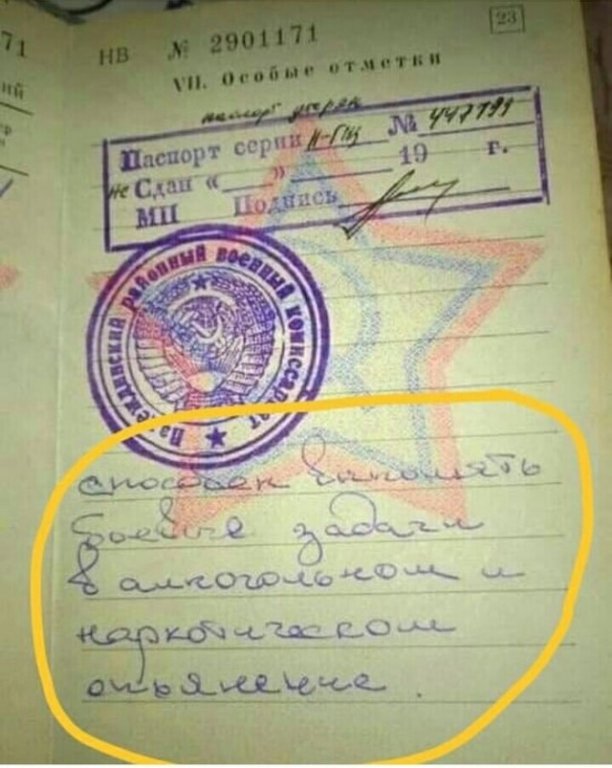 71
ий
НВ № 2901171
23
VII. Особые отметки
паспорт утерян
Паспорт серии II-ГЩ № 447199
не Сдан «___» ______ 19 г.
МП Подпись
Надеждинский районный военный комиссариат
способен выполнять
боевые задачи
в алкогольном и
наркотическом
опьянение.